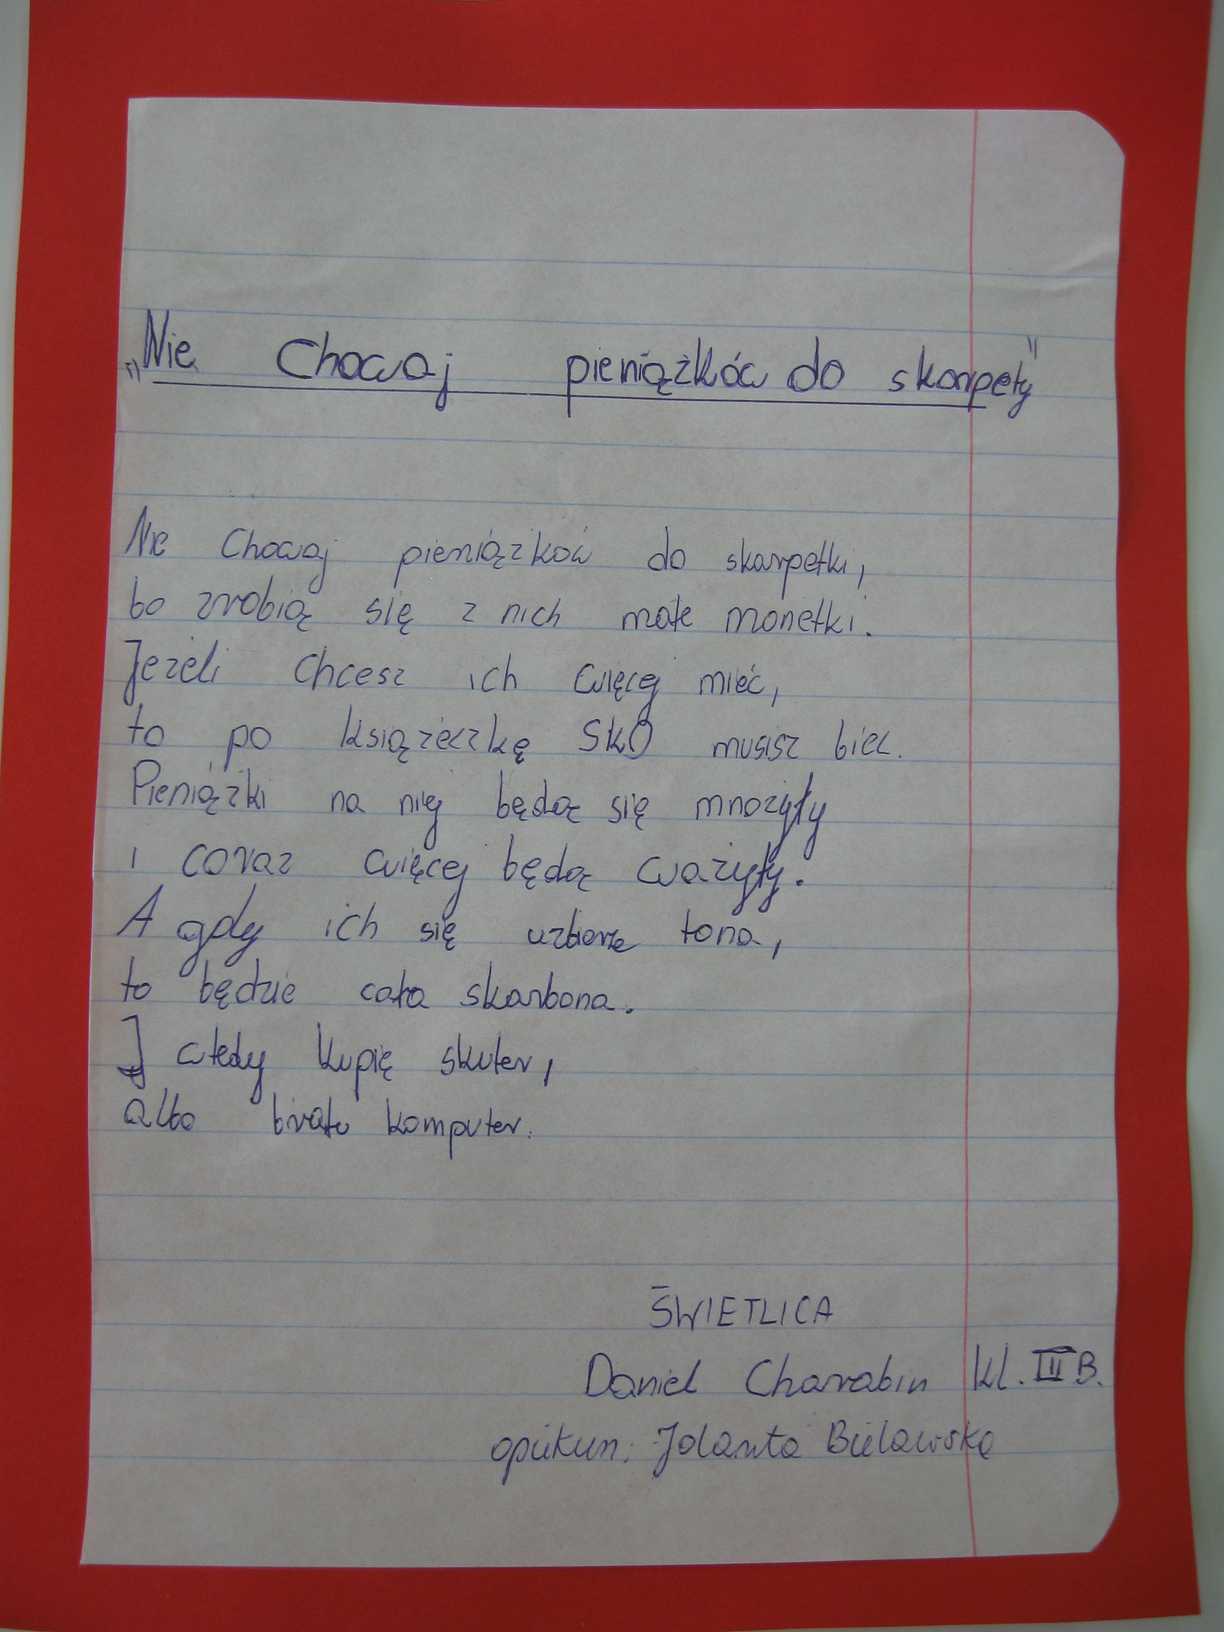 „Nie Chowaj pieniążków do skarpety"
Nie Chowaj pieniążków do skarpetki,
bo zrobią się z nich małe monetki.
Jeżeli chcesz ich więcej mieć,
to po książeczkę SKO musisz biec.
Pieniążki na niej będą się mnożyły
i coraz więcej będą ważyły.
A gdy ich się uzbierze tona,
to będzie cała skarbona.
I wtedy kupię skuter,
albo bratu komputer.
ŚWIETLICA
Daniel Charabin kl. III B.
opiekun: Jolanta Bielawska